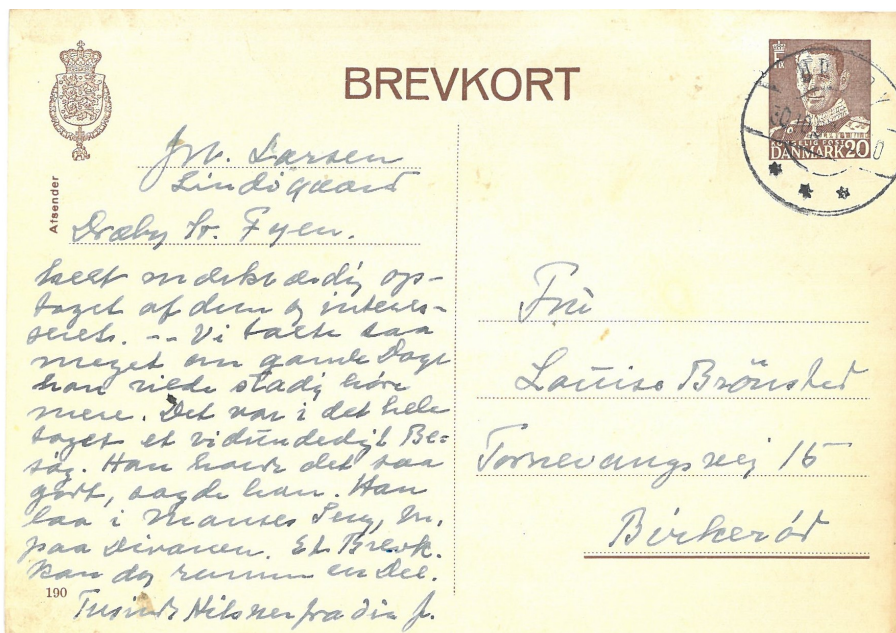 BREVKORT
KONGELIG POST
DANMARK 20
Afsender
Joh. Larsen
Lindøgaard
Dræby St. Fyen.
helt mærkværdig op-
taget af dem og interes-
seret. -- Vi talte saa
meget om gamle Dage
han vilde stadig høre
mere. Det var i det hele
taget et vidunderligt Be-
søg. Han havde det saa
godt, sagde han. Han
laa i Manses Seng, M.
paa Divanen. Et Brevk.
kan dog rumme en Del.
Tusinde Hilsner fra din J.
190
Fru
Louise Brønsted
Tornevangsvej 15
Birkerød